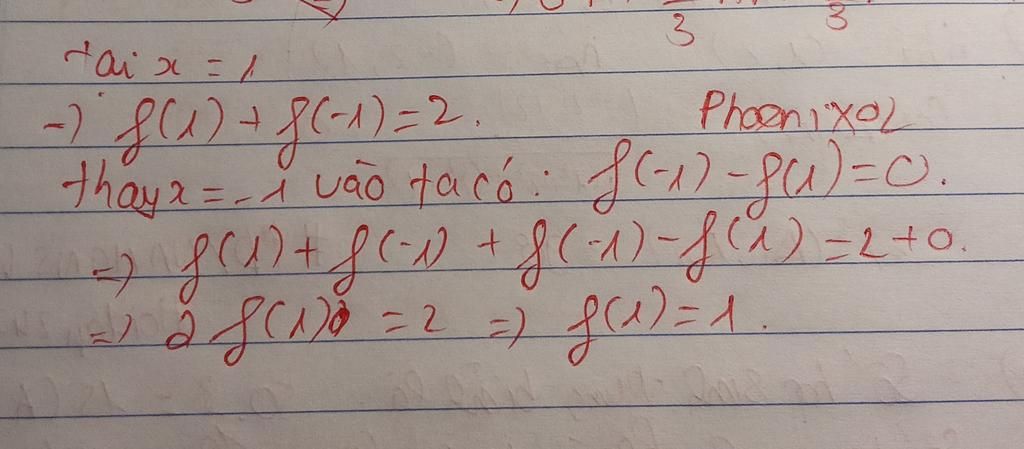 3 3
tại x = 1
=) f(1) + f(-1) = 2.
PhoenixOL
thay x = -1 vào ta có: f(-1) - f(1) = 0.
=) f(1) + f(-1) + f(-1) - f(1) = 2 + 0.
=) 2 f(1) = 2 =) f(1) = 1.